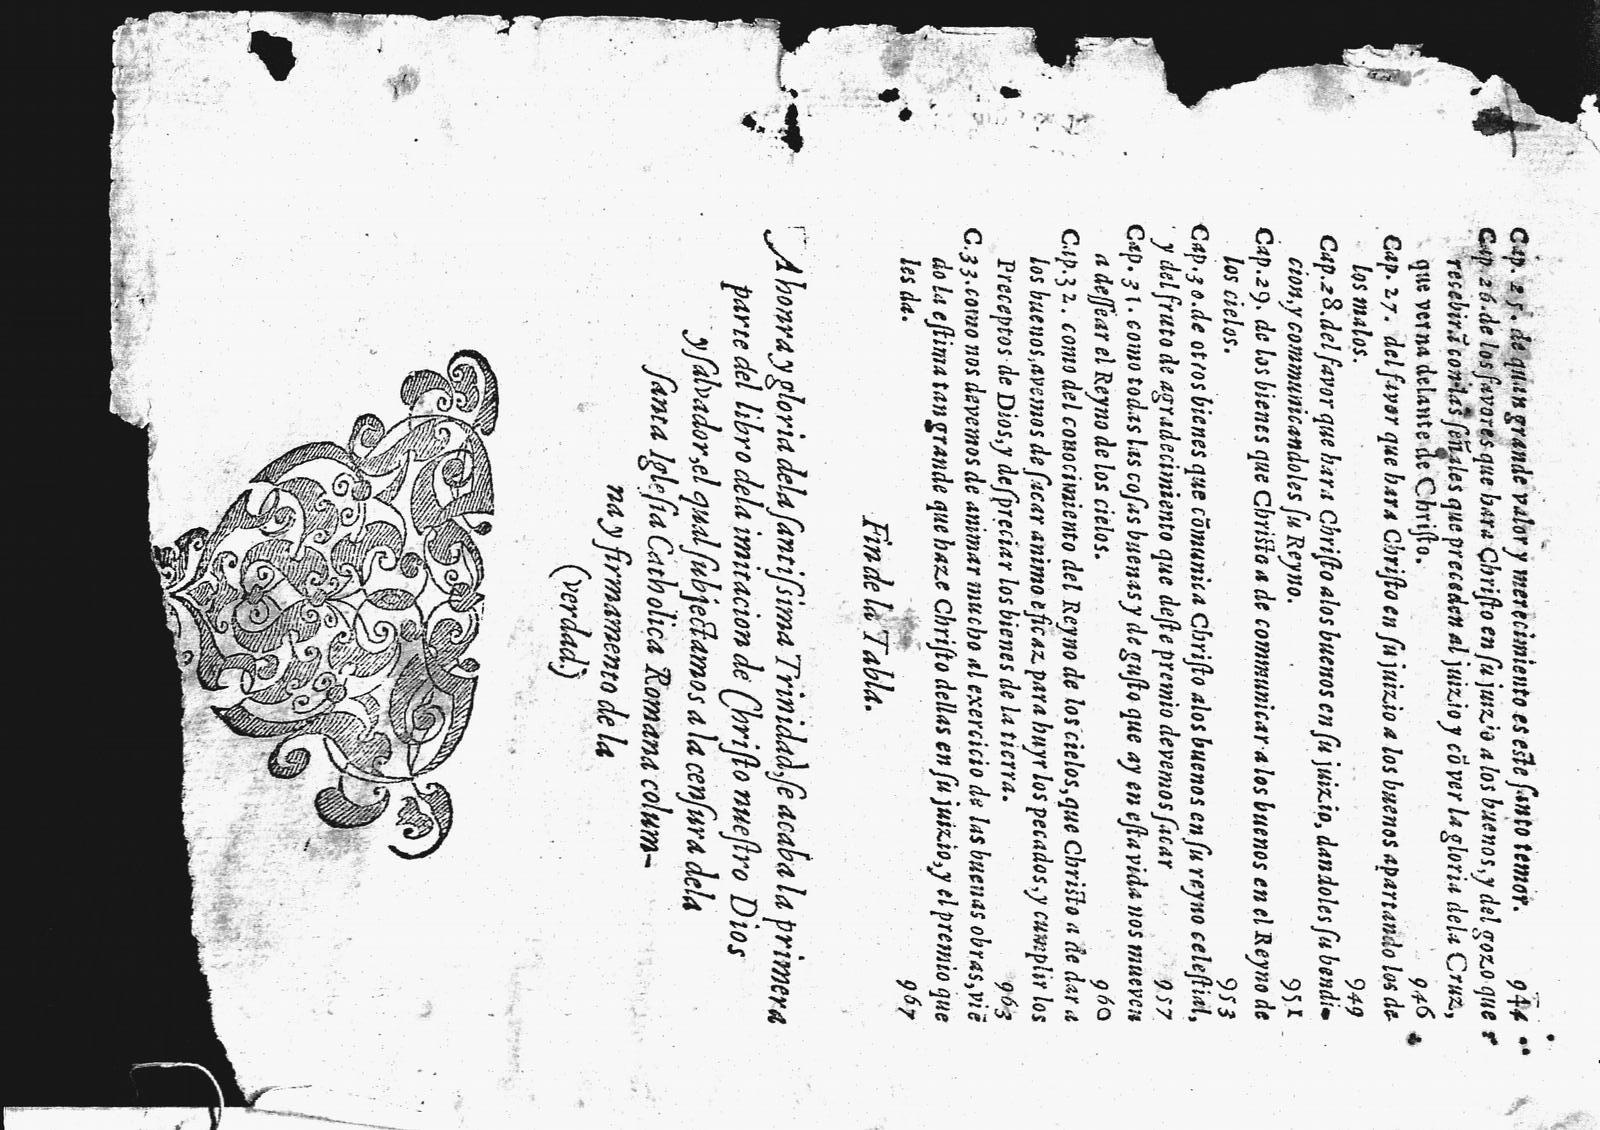 Cap. 25. de quan grande valor y merecimiento es este santo temor. 944
Cap. 26. de los favores que hara Christo en su juyzio a los buenos, y del gozo que r
resebirā con las señales que preceden al juizio y cō ver la gloria de la Cruz,
que verna delante de Christo. 946
Cap. 27. del favor que hara Christo en su juizio a los buenos apartando los de
los malos. 949
Cap. 28. del favor que hara Christo alos buenos en su juizio, dandoles su bendi-
cion, y communicandoles su Reyno. 951
Cap. 29. de los bienes que Christo a de communicar a los buenos en el Reyno de
los cielos. 953
Cap. 30. de otros bienes que cōmunica Christo alos buenos en su reyno celestial,
y del fruto de agradecimiento que deste premio devemos sacar 957
Cap. 31. como todas las cosas buenas y de gusto que ay en esta vida nos mueven
a dessear el Reyno de los cielos. 960
Cap. 32. como del conocimiento del Reyno de los cielos, que Christo a de dar a
los buenos, avemos de sacar animo eficaz para huyr los pecados, y cumplir los
Preceptos de Dios, y despreciar los bienes de la tierra. 963
C. 33. como nos devemos de animar mucho al exercicio de las buenas obras, viē
do la estima tan grande que haze Christo dellas en su juizio, y el premio que
les da. 967
Fin de la Tabla.
A honra y gloria dela santissima Trinidad, se acaba la primera
parte del libro dela imitacion de Christo nuestro Dios
y salvador, el qual subjectamos a la censura dela
santa Iglesia Catholica Romana colum-
na y firmamento de la
(verdad)